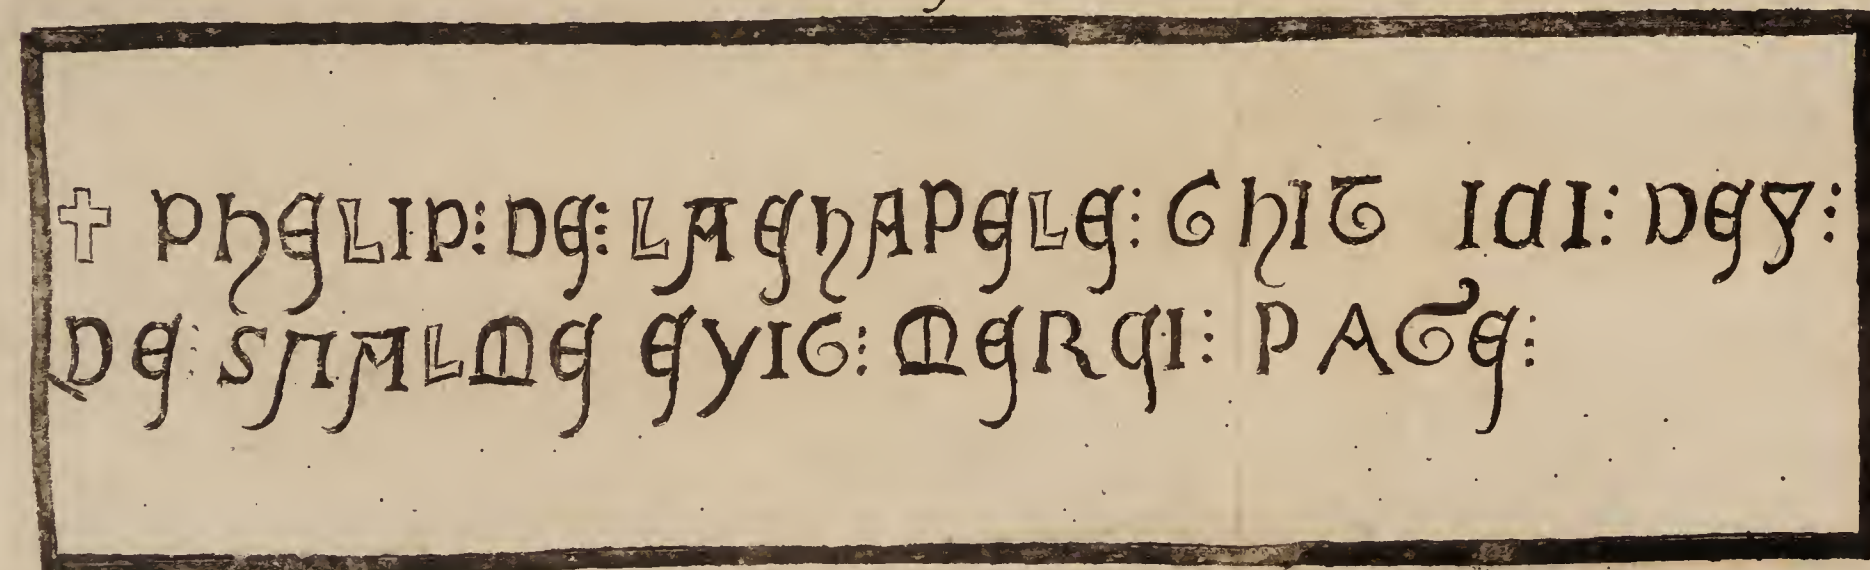 ✝ PHELIP: DE: LA CHAPELE: GHIT ICI: DEY:
DE: SAALME EYIT: MERCI: PATE: